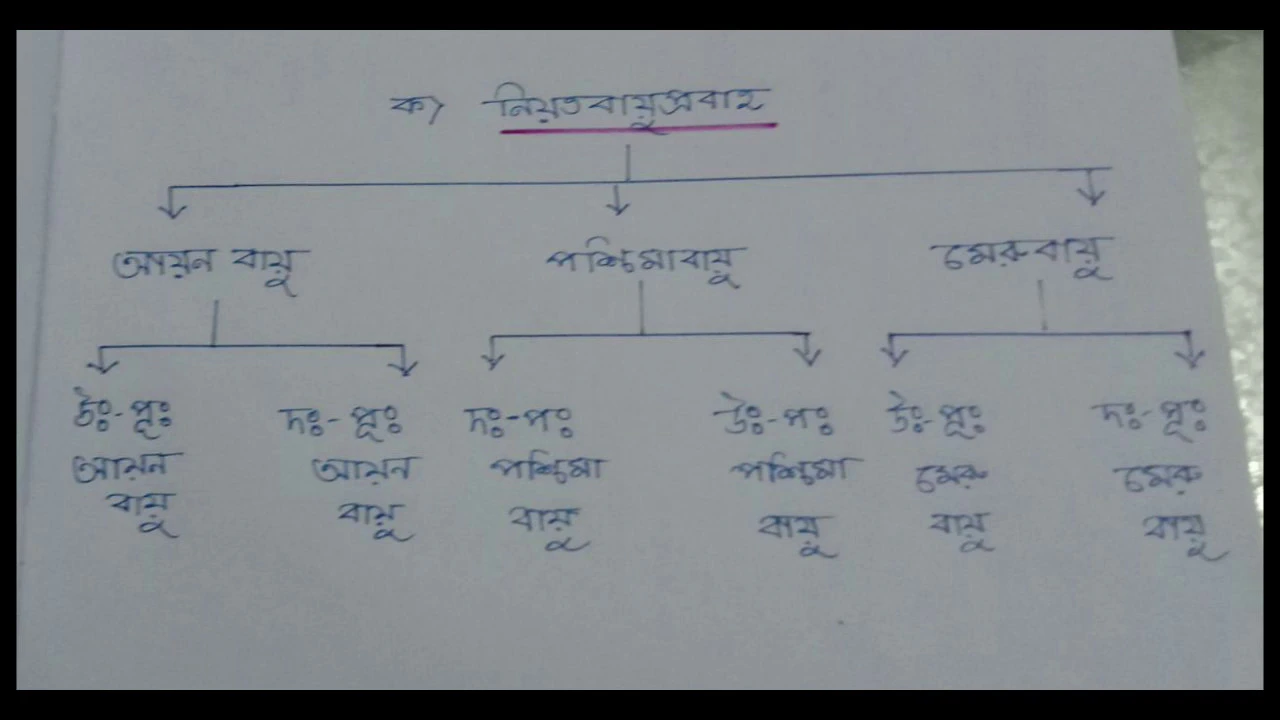 ক) নিয়তবায়ুপ্রবাহ
আয়ন বায়ু পশ্চিমাবায়ু মেরুবায়ু
উঃ-পূঃ দঃ-পূঃ দঃ-পঃ উঃ-পঃ উঃ-পূঃ দঃ-পূঃ
আয়ন আয়ন পশ্চিমা পশ্চিমা মেরু মেরু
বায়ু বায়ু বায়ু বায়ু বায়ু বায়ু